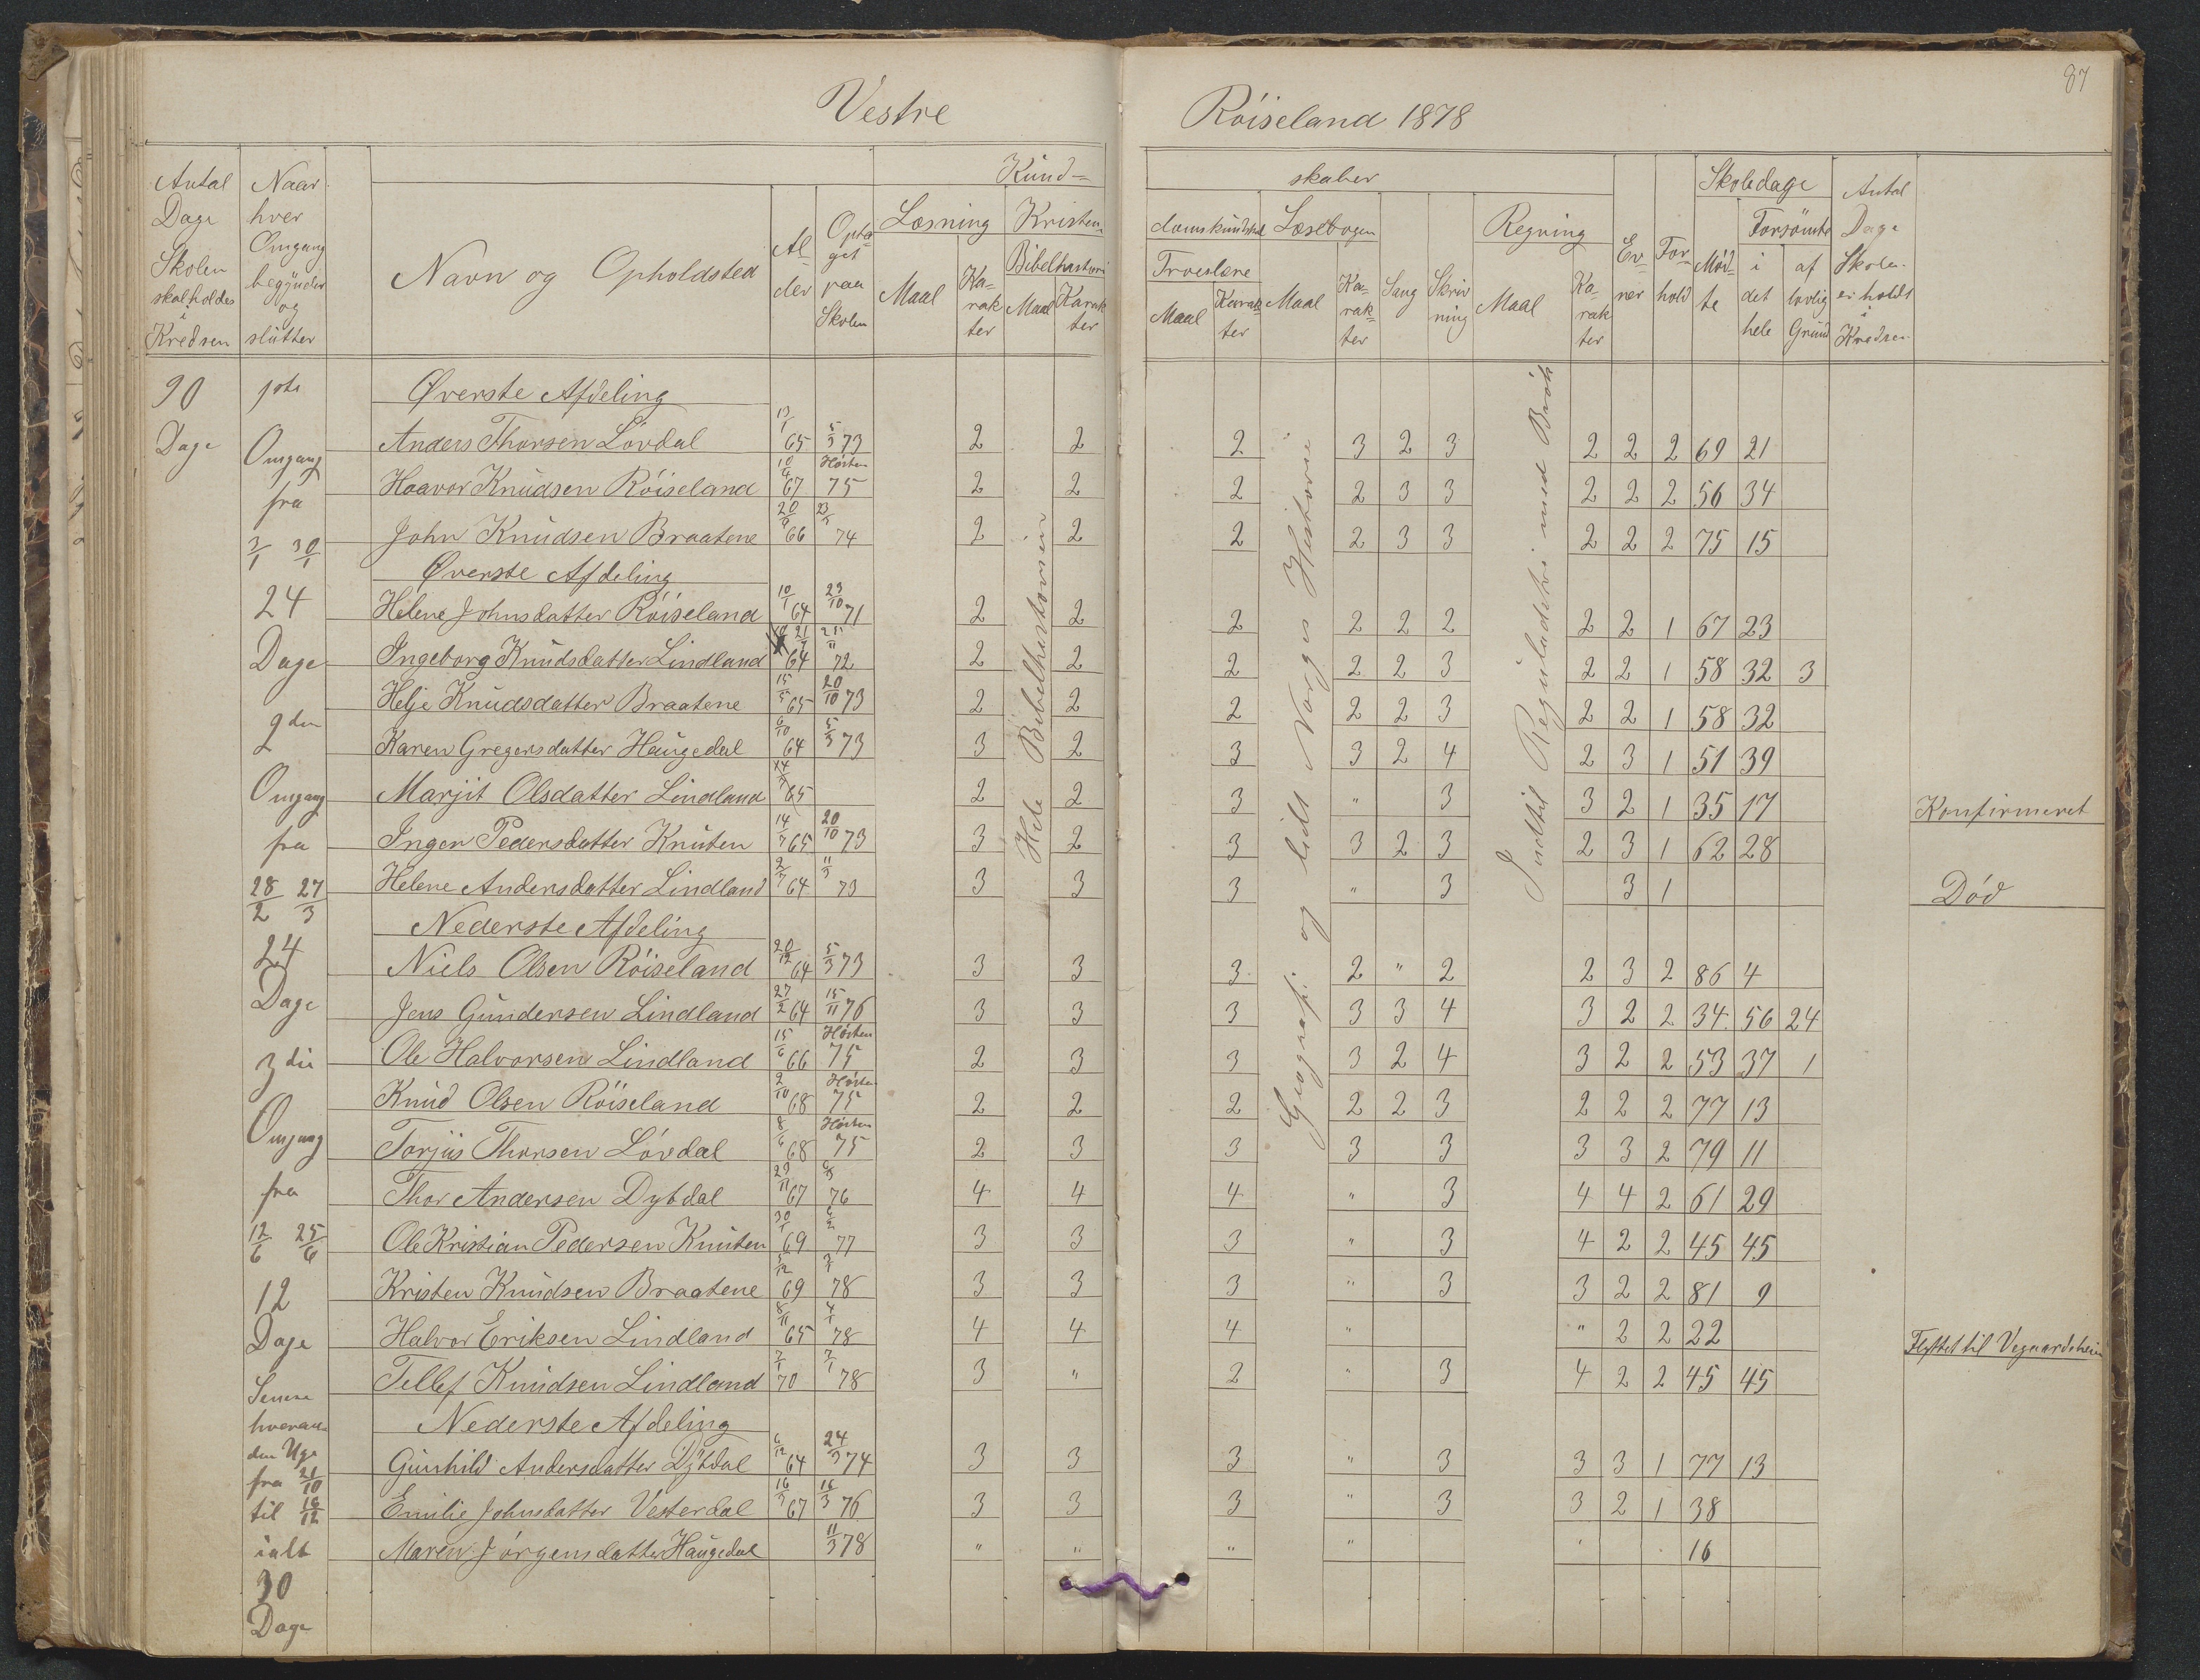 87
Vestre Röiseland 1878
Antal Dage Skolen skal holdes i Kredsen
Naar hver Omgang begynder og slutter
Navn og Opholdsted
Alder
Optaget paa Skolen
Kundskaber
Læsning
Maal
Karakter
Kristendomskundskab
Bibelhistorie
Maal
Karakter
Troeslære
Maal
Karakter
Læsebogen
Maal
Karakter
Sang
Skrivning
Regning
Maal
Karakter
Evner
Forhold
Skoledage
Mödte
Forsömte
i det hele
af lovlig Grund
Antal Dage Skolen er holdt i Kredsen
90 Dage
1ste Omgang fra 3/1 30/1
24 Dage
2den Omgang fra 28/2 27/3
24 Dage
3die Omgang fra 12/6 25/6
12 Dage
Senere hveranden Uge fra 21/10 til 16/12 ialt 30 Dage
Hele Bibelhistorien
Geografi og lidt Norges Historie
Indtil Reguladetri med Brök
Øverste Afdeling
Anders Thorsen Lövdal 13/1 65 5/3 73 2 2 2 3 2 3 2 2 2 69 21
Haavor Knudsen Röiseland 10/4 67 Hösten 75 2 2 2 2 3 3 2 2 2 56 34
John Knudsen Braatene 20/9 66 23/1 74 2 2 2 2 3 3 2 2 2 75 15
Øverste Afdeling
Helene Johnsdatter Röiseland 10/1 64 23/10 71 2 2 2 2 2 2 2 2 1 67 23
Ingeborg Knudsdatter Lindland 64 25/11 72 2 2 2 2 2 3 2 2 1 58 32 3
Helje Knudsdatter Braatene 15/5 65 20/10 73 2 2 2 2 2 3 2 2 1 58 32
Karen Gregersdatter Haugedal 6/10 64 5/3 73 3 2 3 3 2 4 2 3 1 51 39
Marjit Olsdatter Lindland 65 2 2 3 " 3 3 2 1 35 17 Konfirmeret
Inger Pedersdatter Knuten 14/7 65 20/10 73 3 2 3 3 2 3 2 3 1 62 28
Helene Andersdatter Lindland 2/7 64 11/3 73 3 3 3 " 3 3 1 Död
Nederste Afdeling
Niels Olsen Röiseland 20/12 64 5/3 73 3 3 3 2 " 2 2 3 2 86 4
Jens Gundersen Lindland 27/2 64 15/11 76 3 3 3 3 3 4 3 2 2 34 56 24
Ole Halvorsen Lindland 15/6 66 Hösten 75 2 3 3 3 2 4 3 2 2 53 37 1
Knud Olsen Röiseland 2/10 68 Hösten 75 2 2 2 2 2 3 2 2 2 77 13
Torjus Thorsen Lövdal 8/6 68 Hösten 75 2 3 3 3 3 3 3 2 79 11
Thor Andersen Dybdal 29/11 67 76 4 4 4 " 3 4 4 2 61 29
Ole Kristian Pedersen Knuten 30/1 69 6/2 77 3 3 3 " 3 4 2 2 45 45
Kristen Knudsen Braatene 5/12 69 3/1 78 3 3 3 " 3 3 2 2 81 9
Halvor Eriksen Lindland 8/11 65 4/1 78 4 4 4 " " 2 2 22 Flyttet til Vegaardsheien
Tellef Knudsen Lindland 7/1 70 7/1 78 3 " 2 " 3 4 2 2 45 45
Nederste Afdeling
Gunhild Andersdatter Dybdal 6/12 64 24/3 74 3 3 3 " 3 3 3 1 77 13
Emilie Johnsdatter Vesterdal 16/3 67 16/3 76 3 3 3 " 3 3 2 1 38
Maren Jörgensdatter Haugedal 11/3 78 " " " " " 16